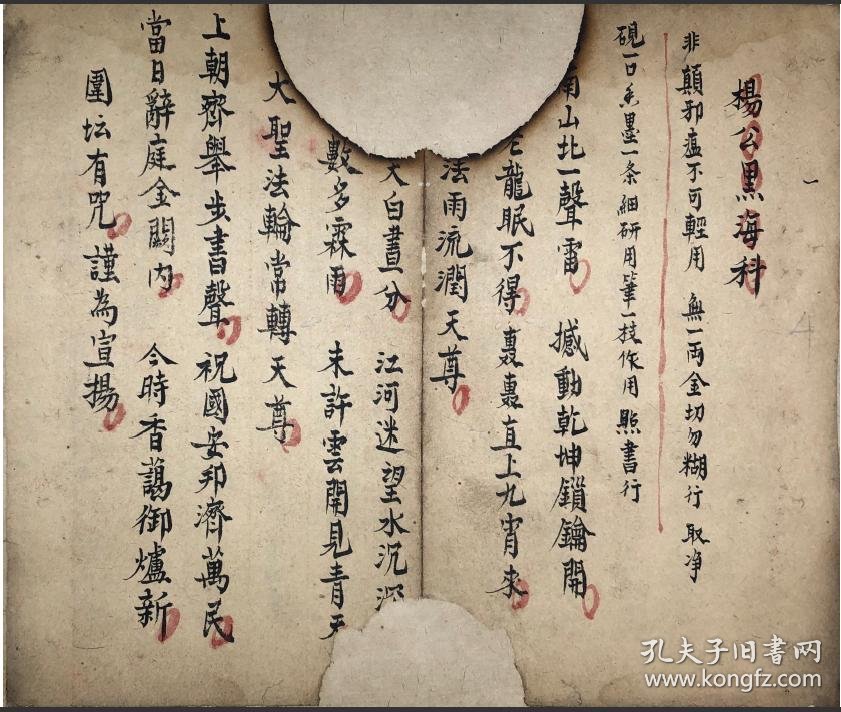 楊公黑海科
一
非顛邪瘟不可輕用 無一両金切勿糊行 取净
硯一口 墨一条 細研用筆一枝作用 照書行
南山北一聲雷 撼動乾坤鎖鑰開
龍眠不得 轟轟直上九宵來
法雨流潤天尊
天白晝分 江河迷望水沉
數多霖雨 未許雲開見青天
大聖法輪常轉天尊
上朝齊舉步書聲 祝國安邦濟萬民
當日辭庭金闕内 今時香藹御爐新
圍坛有咒 謹為宣揚
4
孔夫子旧书网
www.kongfz.com